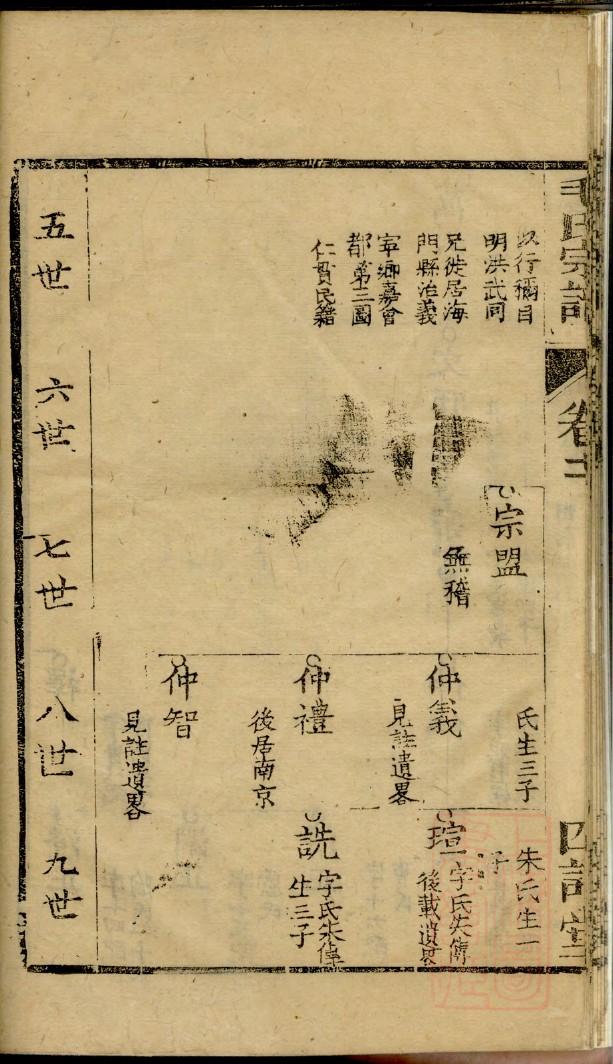 毛氏宗譜
卷二
四訶堂
以行稱目
明洪武同
兄徙居海
門縣治義
宰鄉嘉會
都第三圖
仁貫民籍
宗盟
無稽
氏生三子
仲義
見註遺畧
仲禮
後居南京
仲智
見註遺畧
朱氏生一
子
瑄
字氏失傳
後載遺畧
詵
字氏失傳
生三子
五世
六世
七世
八世
九世